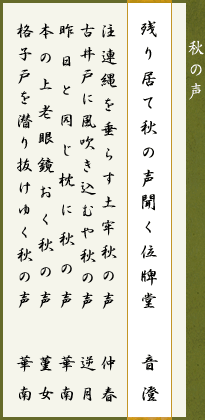 秋の声
残り居て秋の声聞く位牌堂 音澄
注連縄を垂らす土牢秋の声 仲春
古井戸に風吹き込むや秋の声 逆月
昨日と同じ枕に秋の声 華南
本の上老眼鏡おく秋の声 菫女
格子戸を潜り抜けゆく秋の声 華南